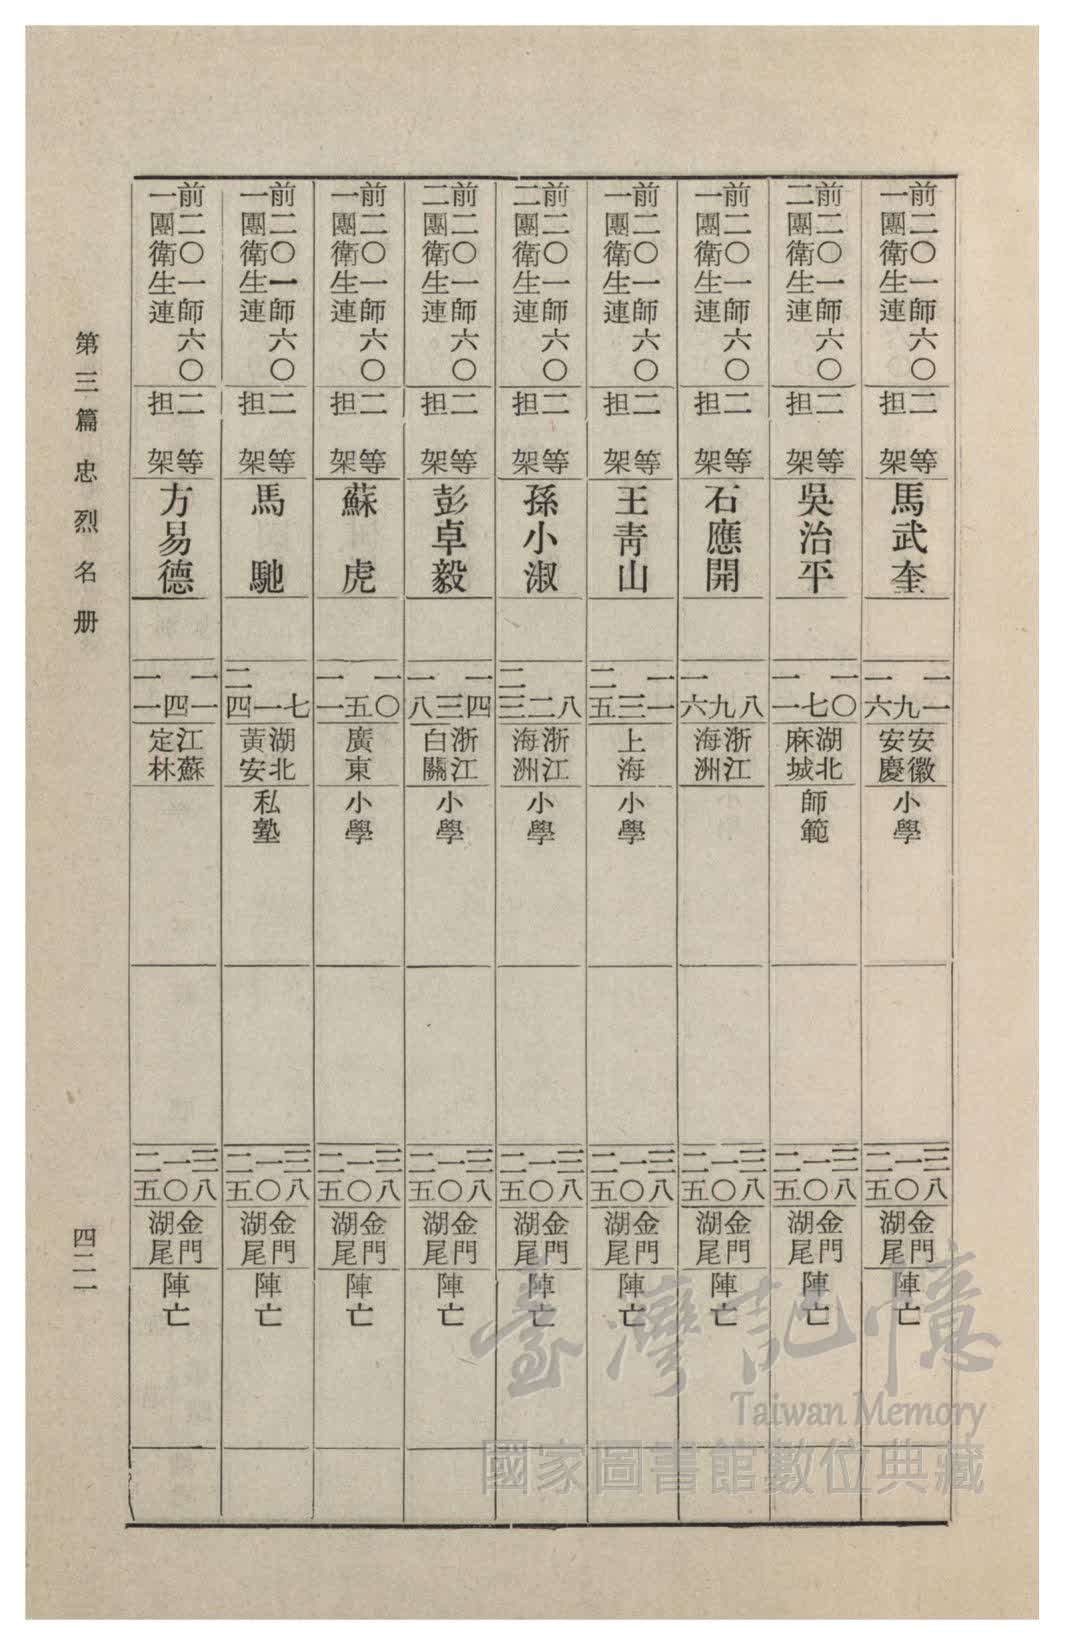 前二〇一師六〇
一團衛生連
二等
担架
馬武奎
一一
九
一六
安徽
安慶
小學
三八
一〇
二五
金門
湖尾
陣亡
前二〇一師六〇
二團衛生連
二等
担架
吳治平
一〇
七
一一
湖北
麻城
師範
三八
一〇
二五
金門
湖尾
陣亡
前二〇一師六〇
一團衛生連
二等
担架
石應開
八
九
一六
浙江
海洲
三八
一〇
二五
金門
湖尾
陣亡
前二〇一師六〇
一團衛生連
二等
担架
王青山
一一
三
二五
上海
小學
三八
一〇
二五
金門
湖尾
陣亡
前二〇一師六〇
二團衛生連
二等
担架
孫小淑
八
二
二三
浙江
海洲
小學
三八
一〇
二五
金門
湖尾
陣亡
前二〇一師六〇
二團衛生連
二等
担架
彭卓毅
一四
三
一八
浙江
白關
小學
三八
一〇
二五
金門
湖尾
陣亡
前二〇一師六〇
一團衛生連
二等
担架
蘇虎
一〇
五
一一
廣東
小學
三八
一〇
二五
金門
湖尾
陣亡
前二〇一師六〇
一團衛生連
二等
担架
馬馳
七
一
二四
湖北
黃安
私塾
三八
一〇
二五
金門
湖尾
陣亡
前二〇一師六〇
一團衛生連
二等
担架
方易德
一一
四
一一
江蘇
定林
三八
一〇
二五
金門
湖尾
陣亡
第三篇忠烈名册
四二一
臺灣記憶
Taiwan Memory
國家圖書館數位典藏